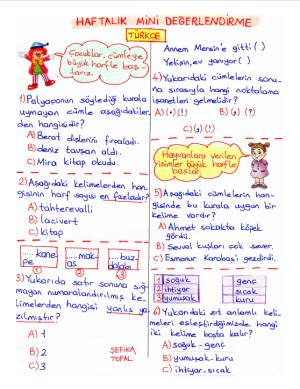 HAFTALIK MİNİ DEĞERLENDİRME
TÜRKÇE
Çocuklar, cümleye
büyük harfle baş-
larız.
1) Palyaçonun söylediği kurala
uymayan cümle aşağıdakiler-
den hangisidir?
A) Berat dişlerini fırçaladı.
B) deniz tavşan aldı.
C) Mira kitap okudu.
2) Aşağıdaki kelimelerden han-
gisinin harf sayısı en fazladır?
A) tahterevalli
B) lacivert
C) kitap
.....kane-
pe
.....mak-
as
...buz-
dolabı
1
2
3
3) Yukarıda satır sonuna sığ-
mayan numaralandırılmış ke-
limelerden hangisi yanlış ya-
zılmıştır?
A) 1
B) 2
C) 3
ŞEFİKA
TOPAL
Annem Mersin'e gitti ( )
Yetişin, ev yanıyor ( )
4) Yukarıdaki cümlelerin sonu-
na sırasıyla hangi noktalama
işaretleri gelmelidir?
A) (.) (!)
B) (,) (?)
C) (,) (!)
Hayvanlara verilen
isimler büyük harfle
başlar.
5) Aşağıdaki cümlelerin han-
gisinde bu kurala uygun bir
kelime vardır?
A) Ahmet sokakta köpek
gördü.
B) Şevval kuşları çok sever.
C) Esmanur Karabaş'ı gezdirdi.
1 soğuk
2 ihtiyar
3 yumuşak
genç
sıcak
kuru
6) Yukarıdaki zıt anlamlı keli-
meleri eşleştirdiğimizde hangi
iki kelime boşta kalır?
A) soğuk - genç
B) yumuşak - kuru
C) ihtiyar - sıcak